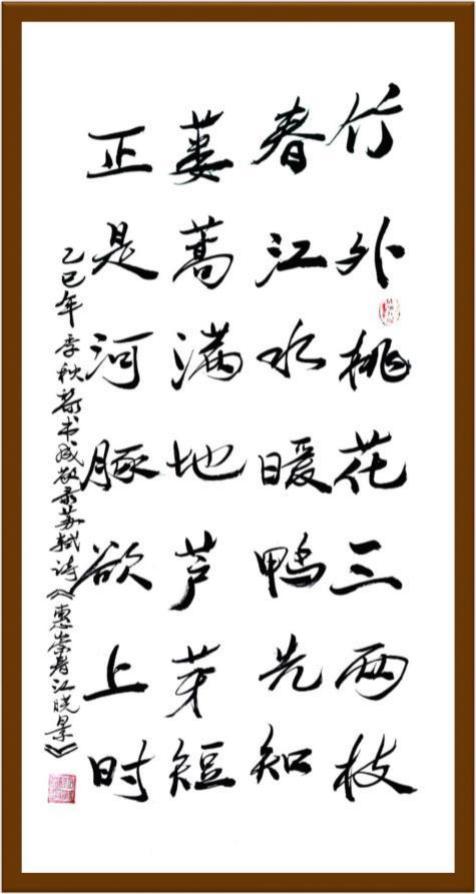 竹外桃花三两枝
春江水暖鸭先知
蒌蒿满地芦芽短
正是河豚欲上时
乙巳年季秋书成敬录苏轼诗《惠崇春江晓景》